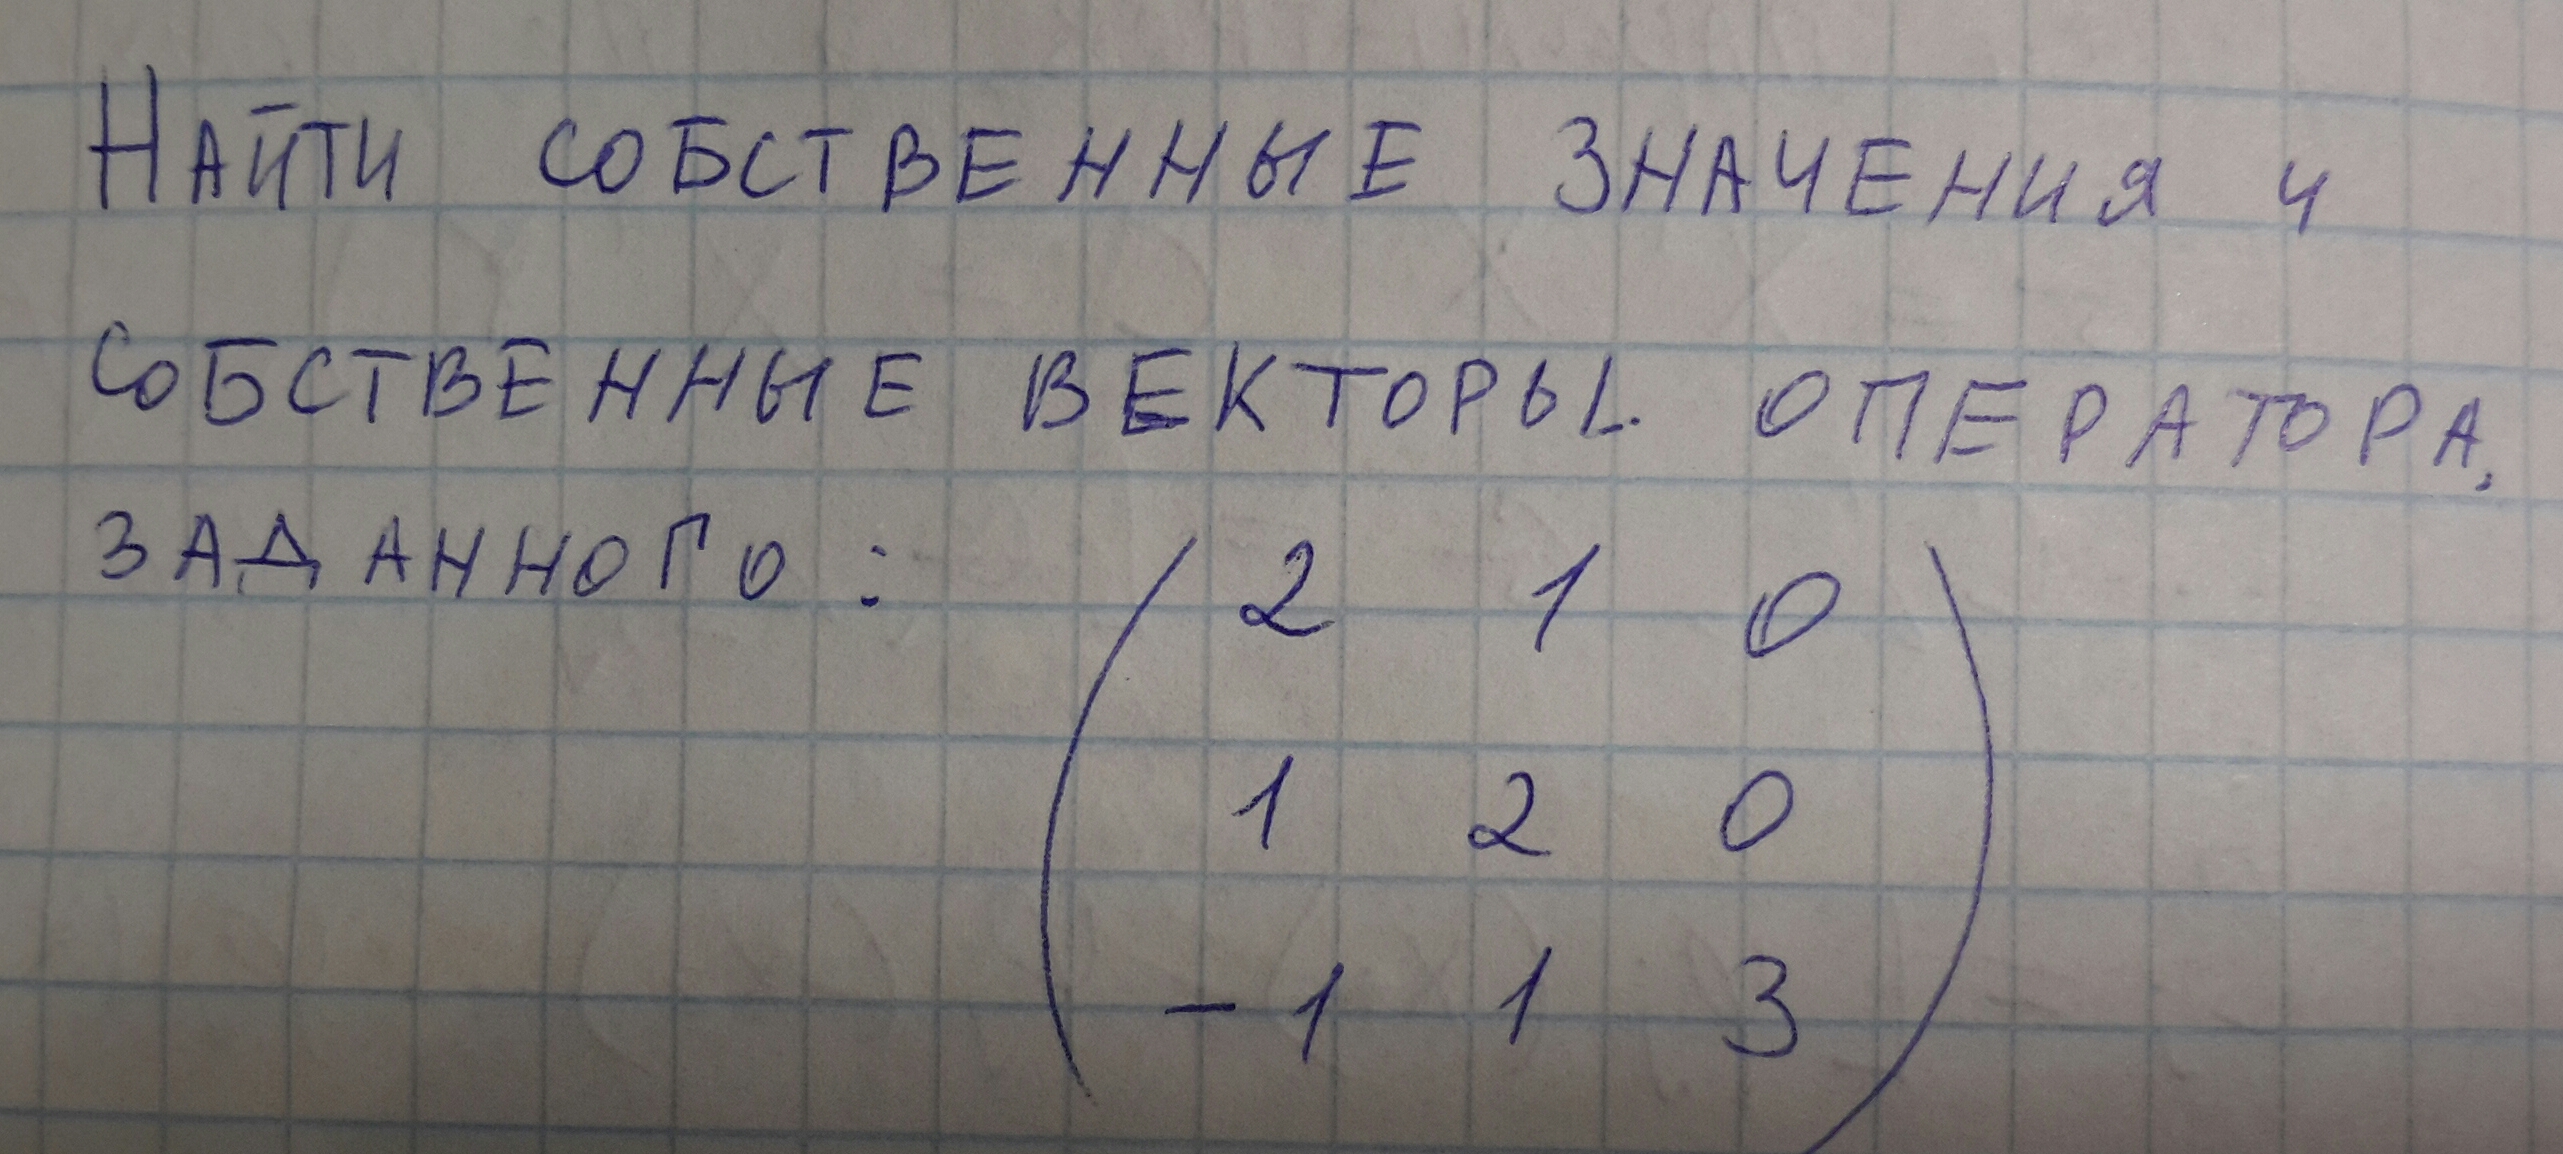 Найти собственные значения и
собственные векторы оператора,
заданного:
2 1 0
1 2 0
-1 1 3